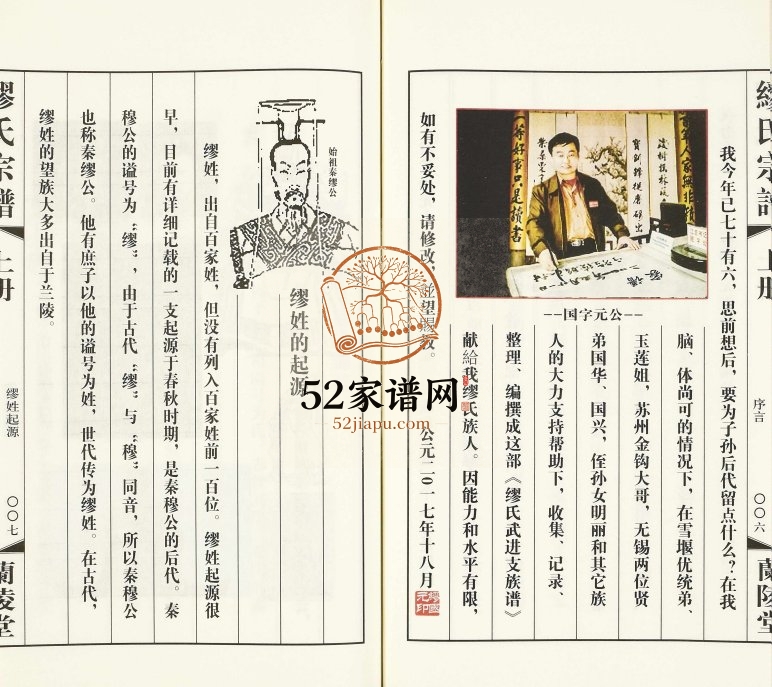 缪氏宗谱
上册
序言
〇〇六
蘭陵堂
我今年已七十有六，思前想后，要为子孙后代留点什么？在我
脑、体尚可的情况下，在雪堰优统弟、
玉莲姐，苏州金钩大哥，无锡两位贤
弟国华、国兴，侄孙女明丽和其它族
人的大力支持帮助下，收集、记录、
整理、编撰成这部《缪氏武进支族谱》
献給我缪氏族人。因能力和水平有限，
如有不妥处，请修改，并望赐教。
公元二〇一七年十八月
--国字元公--
等好事只是读书
缪姓的起源
始祖秦缪公
缪姓，出自百家姓，但没有列入百家姓前一百位。缪姓起源很
早，目前有详细记载的一支起源于春秋时期，是秦穆公的后代。秦
穆公的谥号为“缪”，由于古代“缪”与“穆”同音，所以秦穆公
也称秦缪公。他有庶子以他的谥号为姓，世代传为缪姓。在古代，
缪姓的望族大多出自于兰陵。
缪氏宗谱
上册
缪姓起源
〇〇七
蘭陵堂
52家谱网
52jiapu.com